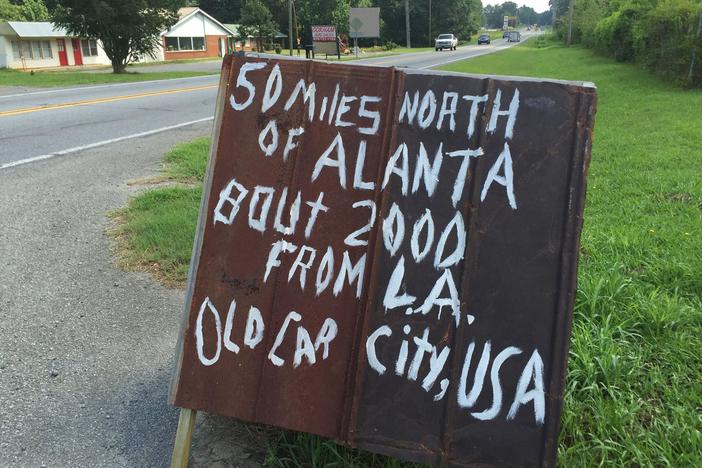 50 MILES NORTH
OF ALANTA
BOUT 2000
FROM L.A.
OLD CAR City, USA